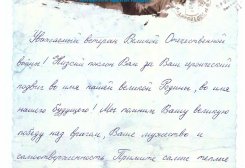 Уважаемый ветеран Великой Отечественной
войны! Низкий поклон Вам за Ваш героический
подвиг во имя нашей великой Родины, во имя
нашего будущего! Мы помним Вашу великую
победу над врагом, Ваше мужество и
самоотверженность. Примите самые теплые